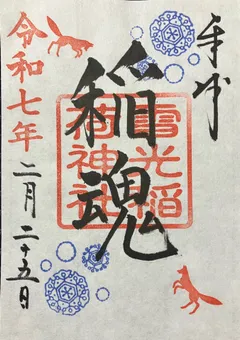 奉拝
稲魂
雪光稲
荷神社
令和七年
二月二十五日